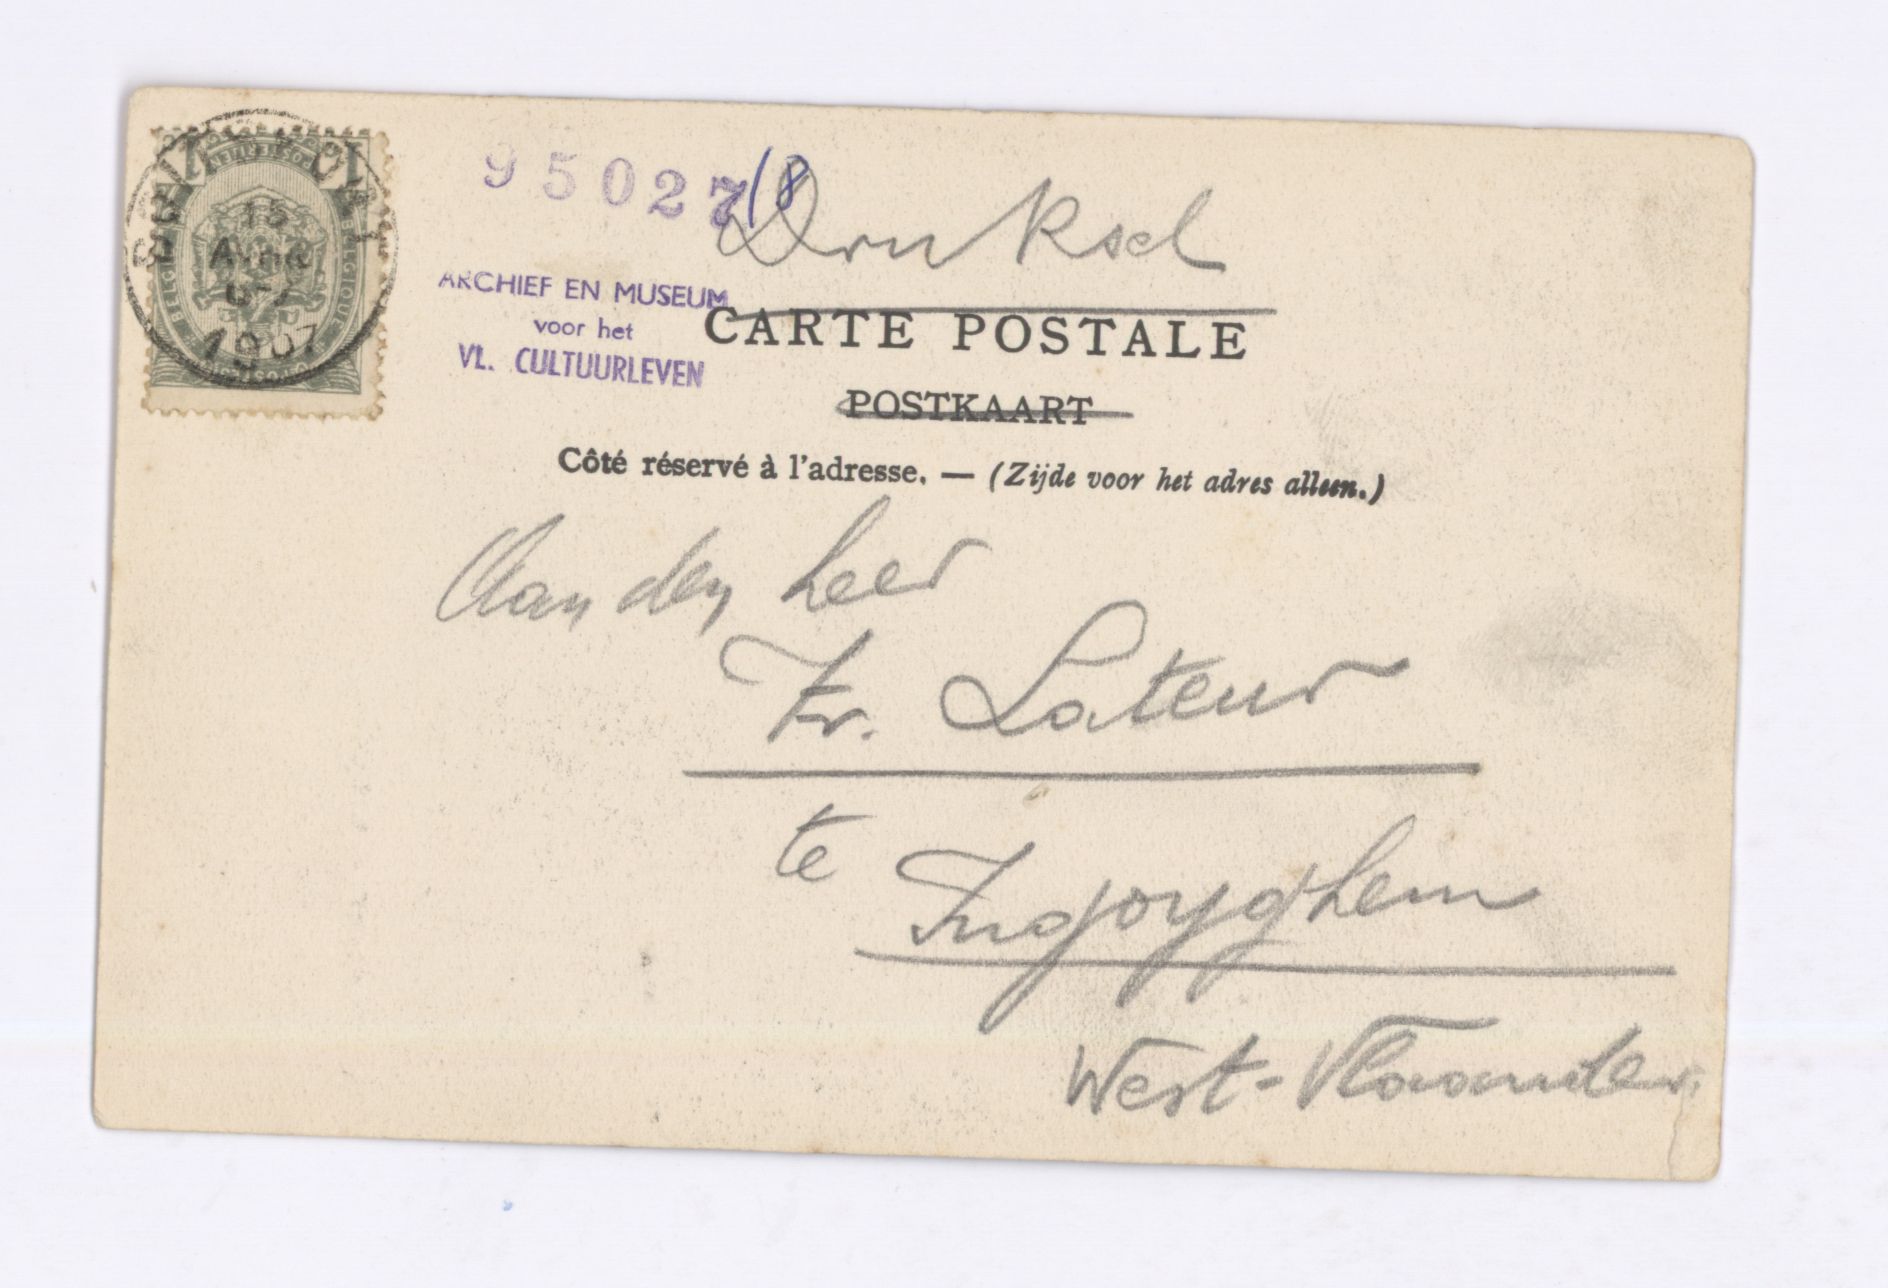 95027/8
Druksel
ARCHIEF EN MUSEUM
voor het
VL. CULTUURLEVEN
CARTE POSTALE
POSTKAART
Côté réservé à l'adresse. — (Zijde voor het adres alleen.)
15
1907
BELGIQUE
Aan den heer
Fr. Lateur
te Ingoyghem
West-Vlaanderen